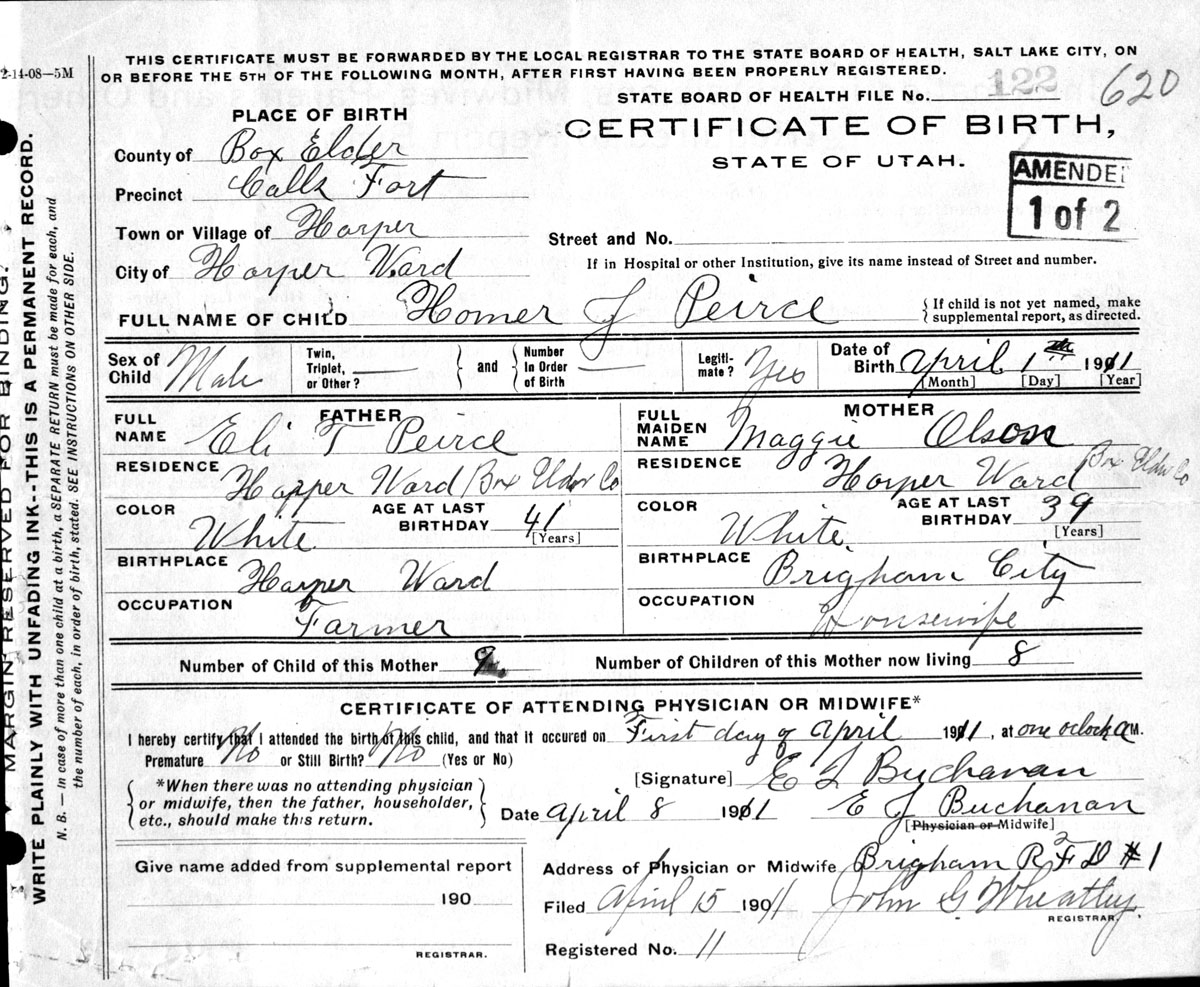 2-14-08—5M
THIS CERTIFICATE MUST BE FORWARDED BY THE LOCAL REGISTRAR TO THE STATE BOARD OF HEALTH, SALT LAKE CITY, ON
OR BEFORE THE 5TH OF THE FOLLOWING MONTH, AFTER FIRST HAVING BEEN PROPERLY REGISTERED.
STATE BOARD OF HEALTH FILE No. 122 620
PLACE OF BIRTH
CERTIFICATE OF BIRTH,
STATE OF UTAH.
AMENDED
1 of 2
County of Box Elder
Precinct Calls Fort
Town or Village of Harper
Street and No.
City of Harper Ward
If in Hospital or other Institution, give its name instead of Street and number.
FULL NAME OF CHILD Homer J Peirce
{If child is not yet named, make
supplemental report, as directed.
Sex of Child Male
Twin, Triplet, or Other?
and
Number In Order of Birth
Legiti-mate? Yes
Date of Birth April 1 1911
[Month] [Day] [Year]
FATHER
FULL NAME Eli T Peirce
RESIDENCE Happer Ward Box Elder Co
COLOR White
AGE AT LAST BIRTHDAY 41 [Years]
BIRTHPLACE Harper Ward
OCCUPATION Farmer
MOTHER
FULL MAIDEN NAME Maggie Olson
RESIDENCE Harper Ward Box Elder Co
COLOR White.
AGE AT LAST BIRTHDAY 39 [Years]
BIRTHPLACE Brigham City
OCCUPATION Housewife
Number of Child of this Mother 9
Number of Children of this Mother now living 8
CERTIFICATE OF ATTENDING PHYSICIAN OR MIDWIFE*
I hereby certify that I attended the birth of this child, and that it occured on First day of April 1911, at one oclock a M.
Premature No or Still Birth? No (Yes or No)
*When there was no attending physician
or midwife, then the father, householder,
etc., should make this return.
[Signature] E J Buchanan
Date April 8 1911 E J Buchanan
[Physician or Midwife]
Give name added from supplemental report
190
REGISTRAR.
Address of Physician or Midwife Brigham R F D #1
Filed April 15 1911 John G Wheatley
REGISTRAR.
Registered No. 11
MARGIN RESERVED FOR BINDING.
WRITE PLAINLY WITH UNFADING INK--THIS IS A PERMANENT RECORD.
N. B.—In case of more than one child at a birth, a SEPARATE RETURN must be made for each, and
the number of each, in order of birth, stated. SEE INSTRUCTIONS ON OTHER SIDE.